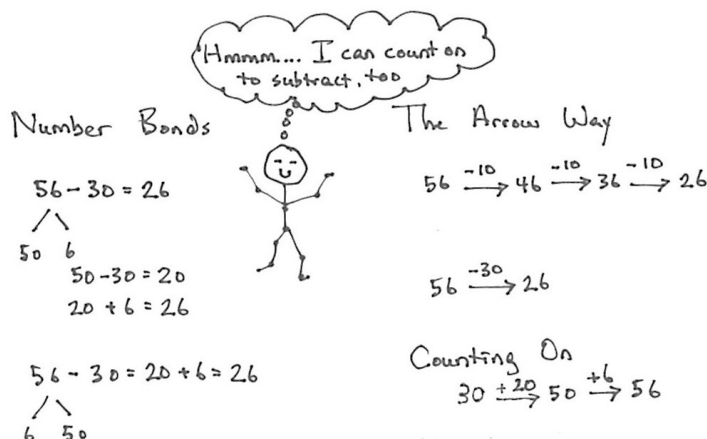 Hmmm.... I can count on
to subtract, too
Number Bonds
56 - 30 = 26
50 6
50 - 30 = 20
20 + 6 = 26
56 - 30 = 20 + 6 = 26
6 50
The Arrow Way
56 -10→ 46 -10→ 36 -10→ 26
56 -30→ 26
Counting On
30 +20→ 50 +6→ 56